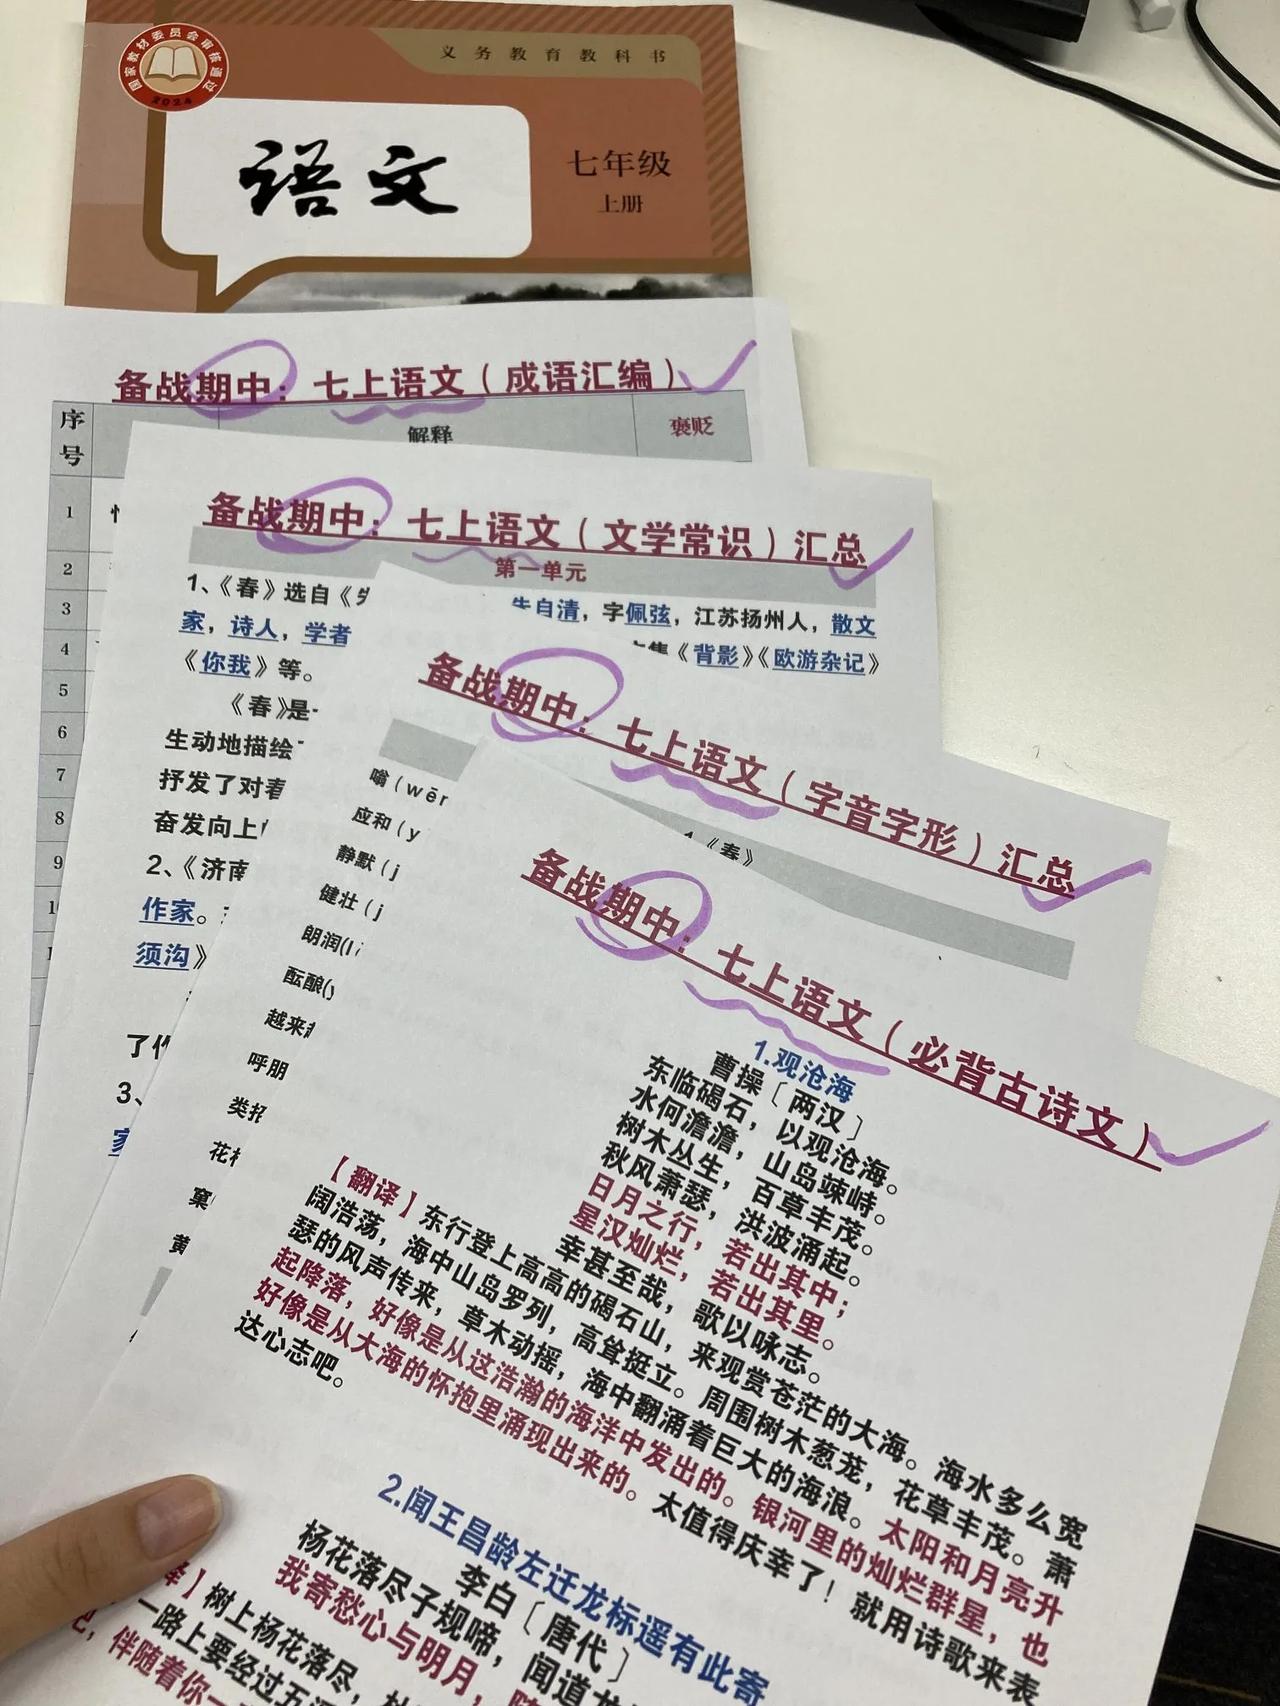 国家教材委员会审核通过
2024
义务教育教科书
语文
七年级
上册
备战期中：七上语文（成语汇编）
序号
解释
褒贬
1
2
3
4
5
6
7
8
9
备战期中：七上语文（文学常识）汇总
第一单元
1、《春》选自《朱自清，字佩弦，江苏扬州人，散文
家，诗人，学者《背影》《欧游杂记》
《你我》等。
《春》是
生动地描绘
抒发了对春
奋发向上
2、《济南
作家。
须沟》
了作
3、
家
备战期中：七上语文（字音字形）汇总
1《春》
嗡（wēn
应和（y
静默（j
健壮（j
朗润(l
酝酿(y
越来越
呼朋
类招
花枝
窠
黄
备战期中：七上语文（必背古诗文）
1.观沧海
曹操〔两汉〕
东临碣石，以观沧海。
水何澹澹，山岛竦峙。
树木丛生，百草丰茂。
秋风萧瑟，洪波涌起。
日月之行，若出其中；
星汉灿烂，若出其里。
幸甚至哉，歌以咏志。
【翻译】东行登上高高的碣石山，来观赏苍茫的大海。海水多么宽
阔浩荡，海中山岛罗列，高耸挺立。周围树木葱茏，花草丰茂。萧
瑟的风声传来，草木动摇，海中翻涌着巨大的海浪。太阳和月亮升
起降落，好像是从这浩瀚的海洋中发出的。银河里的灿烂群星，也
好像是从大海的怀抱里涌现出来的。太值得庆幸了！就用诗歌来表
达心志吧。
2.闻王昌龄左迁龙标遥有此寄
李白〔唐代〕
杨花落尽子规啼，闻道龙
我寄愁心与明月，随
译】树上杨花落尽，杜
一路上要经过五溪
吧，伴随着你一